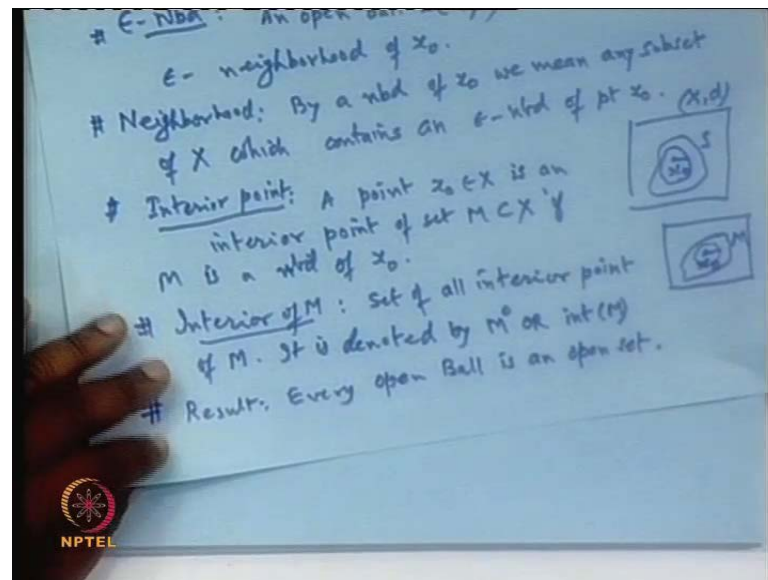 # ε-Nbd : An open
ε- neighborhood of x₀.
# Neighborhood: By a nbd of x₀ we mean any subset
of X which contains an ε-nbd of pt x₀. (X,d)
S
x₀
# Interior point: A point x₀ ∈ X is an
interior point of set M ⊂ X if
M is a nbd of x₀.
M
x₀
# Interior of M : Set of all interior point
of M. It is denoted by M° OR int (M)
# Result: Every open Ball is an open set.
NPTEL